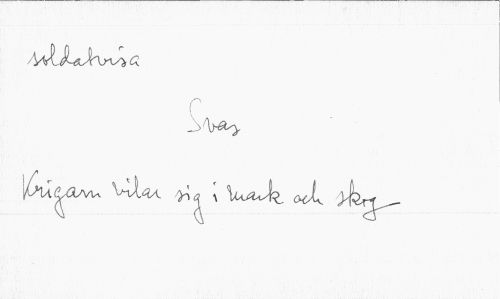 soldatvisa
Svar
Krigarn vilar sig i mark och skog